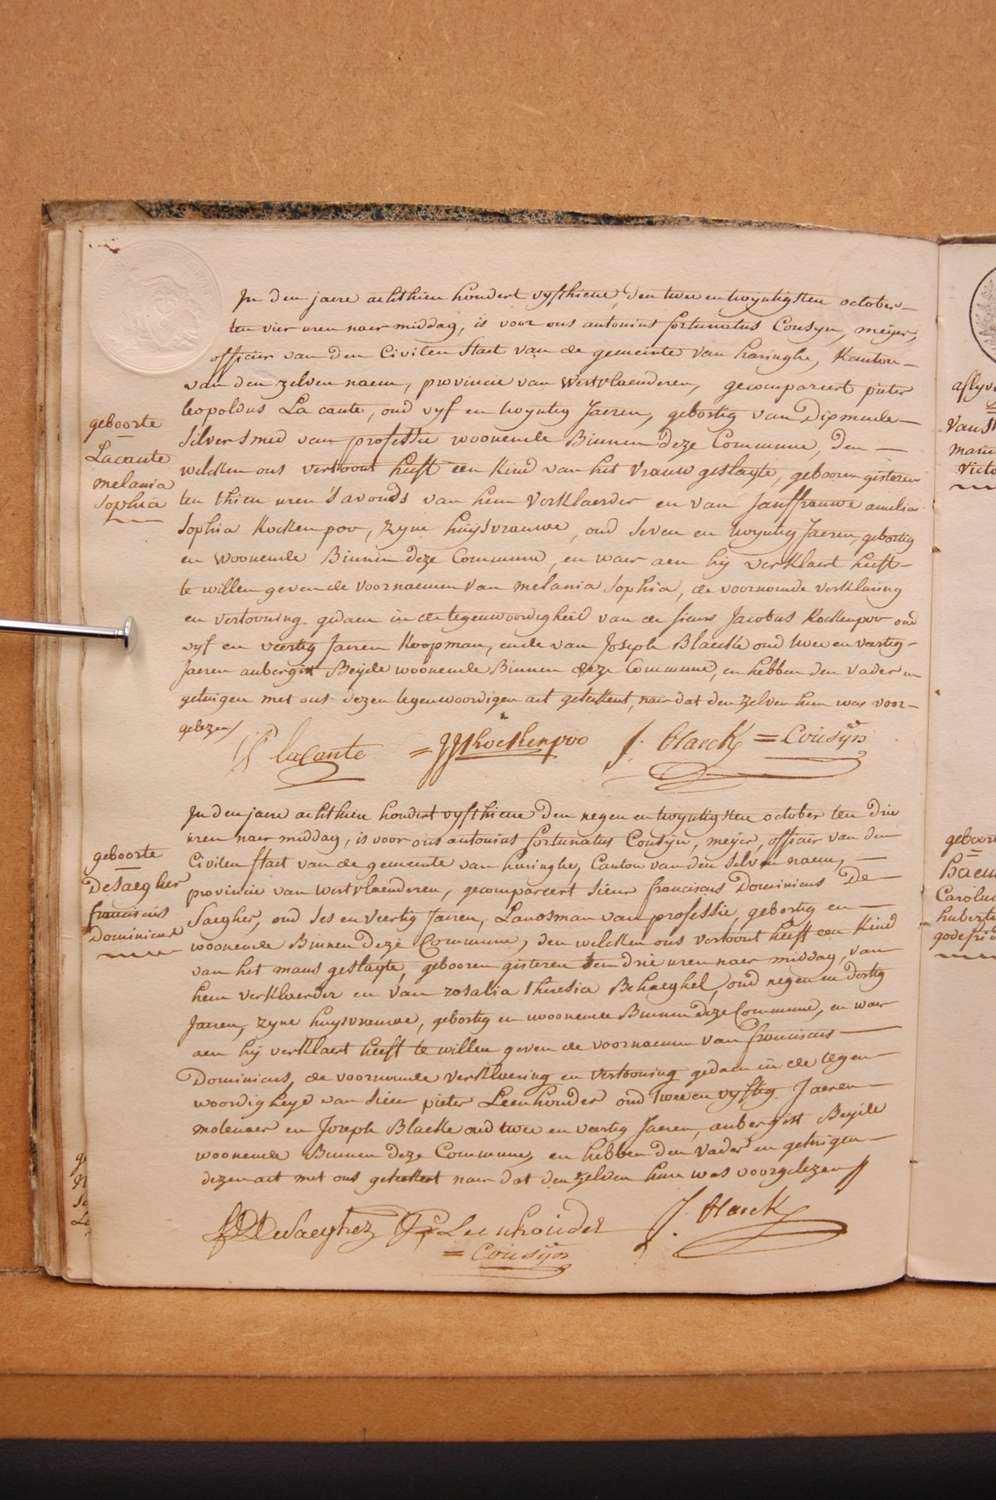 In den jaere achthien hondert vyfthiene, den twee en twyntigsten october
ten vier uren naer middag, is voor ons antonius fortunatus Cousyn, meijer,
officier van den Civilen Staet van de gemeente van haringhe, Kanton
van den zelven naem, provincie van westvlaenderen, gecompareert pieter
leopoldus La cante, oud vyf en twyntig Jaeren, gebortig van Dixmude
Silversmed van professie woonende Binnen deze Commune, den
welcken ons vertoont heeft een Kind van het Vrauw geslagte, gebooren gisteren
ten thien uren s'avonds van hem Verklaerder en van Jouffrauwe amelia
Sophia Kockenpoo, zyne huysvrauwe, oud Seven en twyntig Jaeren, gebortig
en woonende Binnen deze Commune, en waer aen hij verklaert heeft
te willen geven de voornaemen van melania Sophia, de voornoemde verklaring
en vertooning gedaen in de tegenwoordigheid van de sieurs Jacobus Kockenpoo oud
vyf en veertig Jaeren Koopman, ende van Joseph Blaecke oud twee en veertig
Jaeren aubergist Beijde woonende Binnen deze Commune, en hebben den vader en
getuigen met ons dezen tegenwoordigen act geteekent, naer dat den zelven hun was voor
gelezen
geboorte
Lacante
melania
Sophia
lacante = JJ Kockenpoo J. blaeck = Cousijn
In den jaere achthien hondert vyfthiene den negen en twyntigsten october ten drie
uren naer middag, is voor ons antonius fortunatus Cousyn, meijer, officier van den
Civilen staet van de gemeente van haringhe, Canton van den selven naem,
provincie van westvlaenderen, gecompareert sieur franciscus Dominicus De
Saegher, oud ses en veertig Jaeren, Landsman van professie, gebortig en
woonende Binnen deze Commune, den welcken ons vertoont heeft een Kind
van het mans geslagte, gebooren gisteren ten drie uren naer middag, van
hem verklaerder en van rosalia theresia Behaeghel, oud negen en dertig
Jaeren, zyne huysvrauwe, gebortig en woonende Binnen deze Commune, en waer
aen hij verklaert heeft te willen geven de voornaemen van franciscus
Dominicus, de voornoemde verklaering en vertooning gedaen in de tegen
woordigheyd van sieur pieter Leenhouder oud twee en vyftig Jaeren
molenaer en Joseph Blaecke oud twee en veertig Jaeren, aubergist Beijde
woonende Binnen deze Commune, en hebben den vader en getuigen
dezen act met ons geteekent naer dat den zelven hun was voorgelezen
geboorte
DeSaegher
franciscus
Dominicus
FD DeSaegher P Leenhouder J. blaeck
= Cousijn
aflyv
Van
geboor
Baem
Carolus
huberte
godefrid